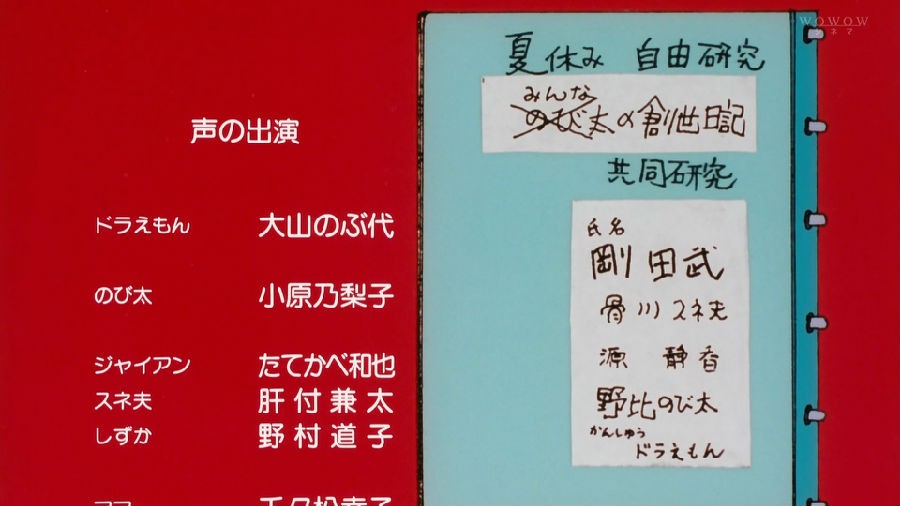 WOWOW
シネマ
声の出演
ドラえもん 大山のぶ代
のび太 小原乃梨子
ジャイアン たてかべ和也
スネ夫 肝付兼太
しずか 野村道子
夏休み 自由研究
みんな
のび太の創世日記
共同研究
氏名
剛田武
骨川スネ夫
源 静香
野比のび太
かんしゅう
ドラえもん